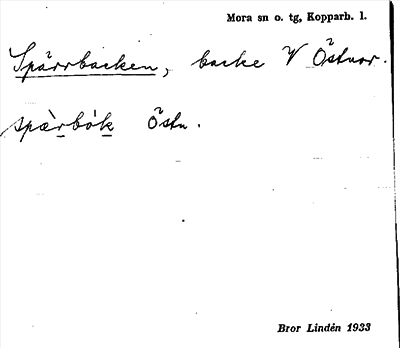 Mora sn o. tg, Kopparb. l.
Spärrbacken, backe V Östnor.
spæ̀rbók Östn.
Bror Lindén 1933